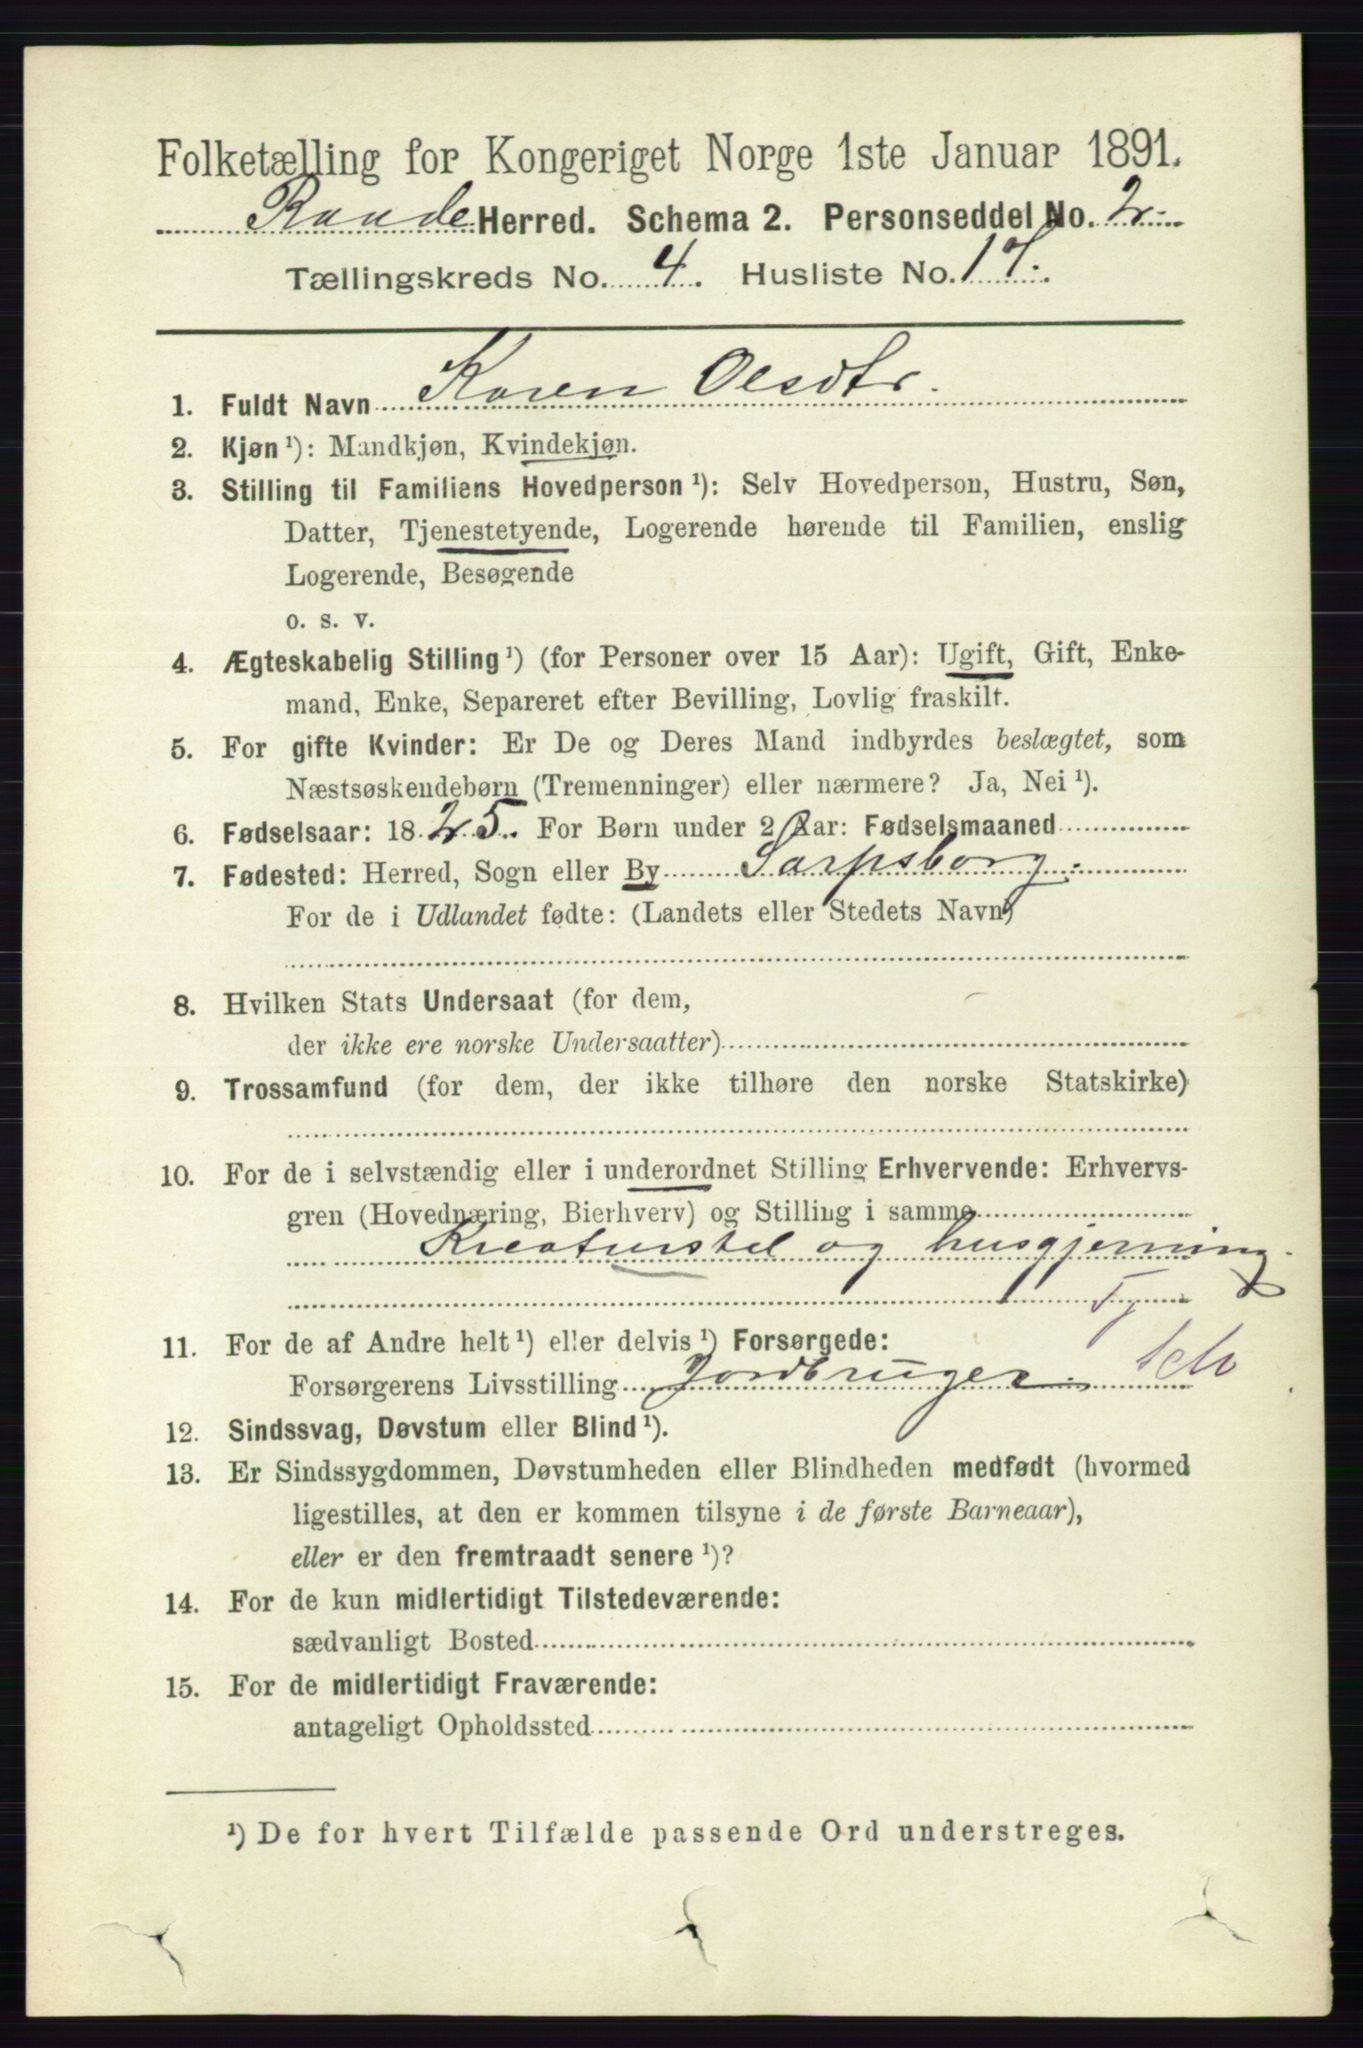 Folketælling for Kongeriget Norge 1ste Januar 1891.
Raade Herred. Schema 2. Personseddel No. 2.
Tællingskreds No. 4. Husliste No. 17.
1. Fuldt Navn Karen Olsdtr.
2. Kjøn ¹): Mandkjøn, Kvindekjøn.
3. Stilling til Familiens Hovedperson ¹): Selv Hovedperson, Hustru, Søn,
Datter, Tjenestetyende, Logerende hørende til Familien, enslig
Logerende, Besøgende
o. s. v.
4. Ægteskabelig Stilling ¹) (for Personer over 15 Aar): Ugift, Gift, Enke-
mand, Enke, Separeret efter Bevilling, Lovlig fraskilt.
5. For gifte Kvinder: Er De og Deres Mand indbyrdes beslægtet, som
Næstsøskendebørn (Tremenninger) eller nærmere? Ja, Nei ¹).
6. Fødselsaar: 1825. For Børn under 2 Aar: Fødselsmaaned
7. Fødested: Herred, Sogn eller By Sarpsborg.
For de i Udlandet fødte: (Landets eller Stedets Navn)
8. Hvilken Stats Undersaat (for dem,
der ikke ere norske Undersaatter)
9. Trossamfund (for dem, der ikke tilhøre den norske Statskirke)
10. For de i selvstændig eller i underordnet Stilling Erhvervende: Erhvervs-
gren (Hovednæring, Bierhverv) og Stilling i samme
Kreaturstel og husgjerning.
Tj
11. For de af Andre helt ¹) eller delvis ¹) Forsørgede:
Forsørgerens Livsstilling Jordbruger.
12. Sindssvag, Døvstum eller Blind ¹).
13. Er Sindssygdommen, Døvstumheden eller Blindheden medfødt (hvormed
ligestilles, at den er kommen tilsyne i de første Barneaar),
eller er den fremtraadt senere ¹)?
14. For de kun midlertidigt Tilstedeværende:
sædvanligt Bosted
15. For de midlertidigt Fraværende:
antageligt Opholdssted
¹) De for hvert Tilfælde passende Ord understreges.